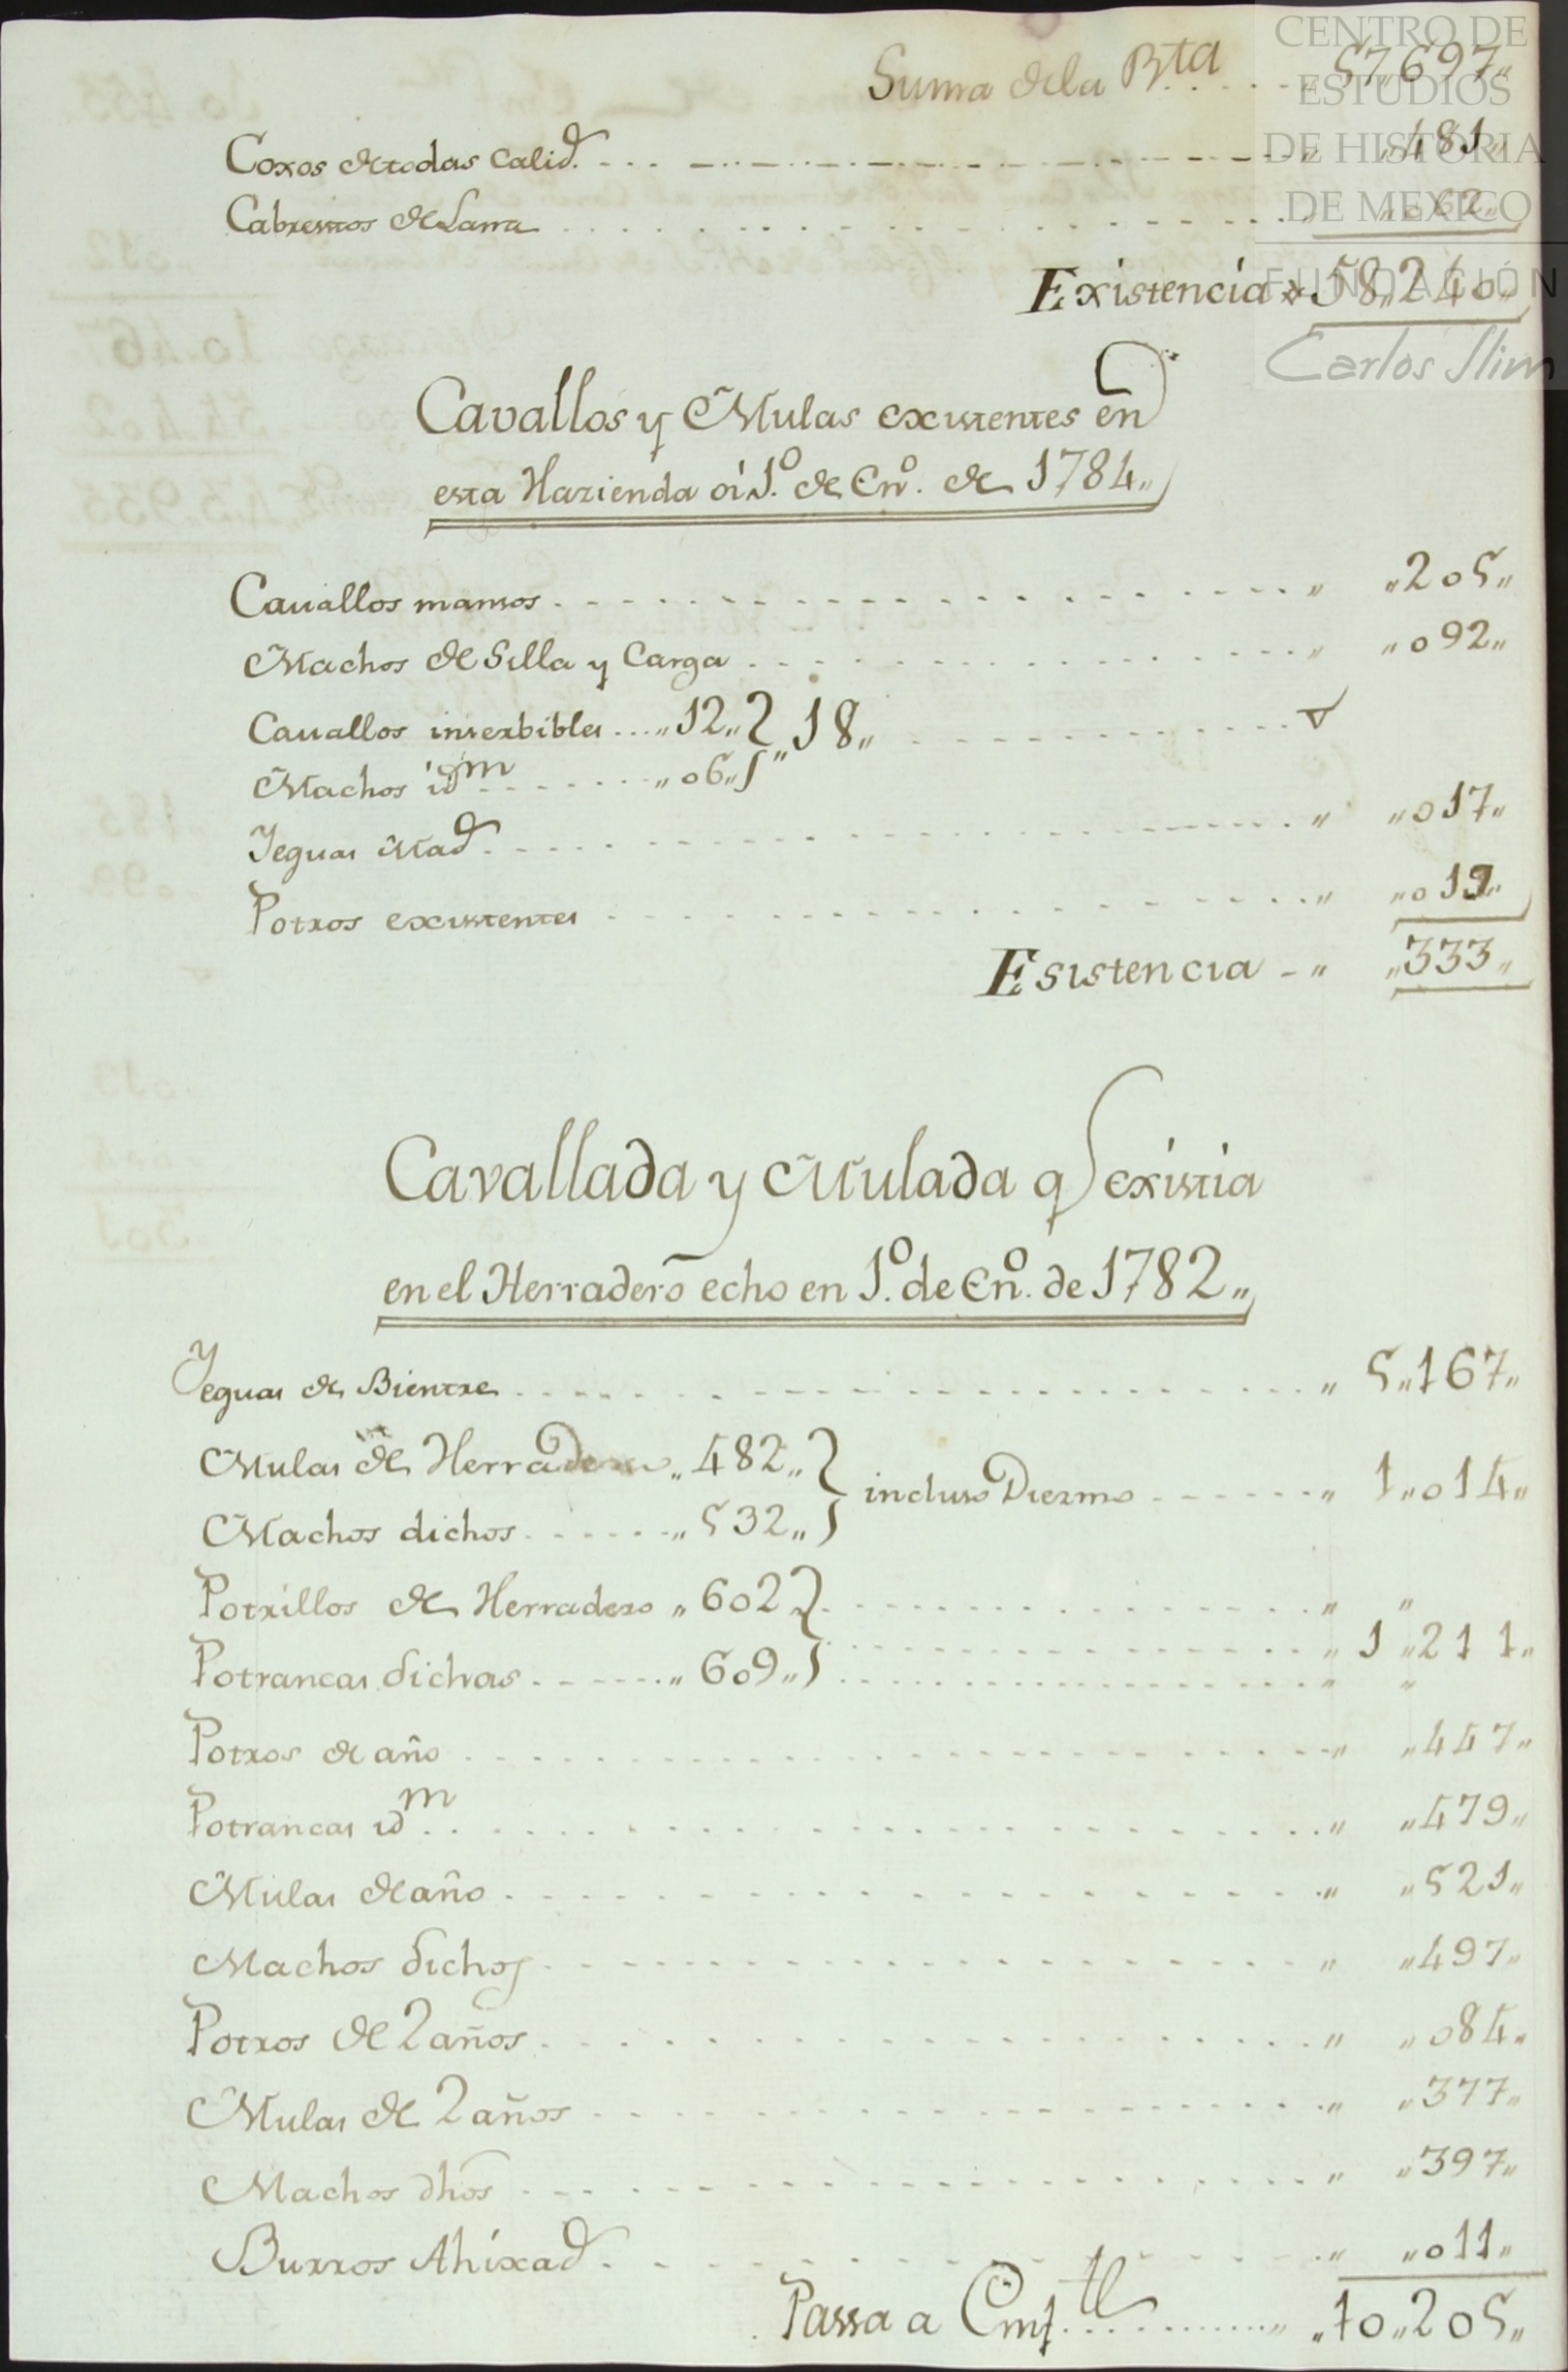 CENTRO DE
ESTUDIOS
DE HISTORIA
DE MEXICO
FUNDACIÓN
Carlos Slim
Suma dela Bta . . . . „ 57„697„
Coxos de todas Calid. - - - „ „481„
Cabrestos de Lana . . . . „ „062„
Existencia „ 58„240„
Cavallos y Mulas existentes en
esta Hazienda oi 1º de Enº. de 1784„
Cauallos mansos - - - - „ „205„
Machos de Silla y Carga - - - - „ „092„
Cauallos inserbibles .... „12„ } „18„
Machos idm - - - - „06„
Yeguas Mad. - - - - „ „017„
Potros existentes - - - - „ „019„
Esistencia - „ „333„
Cavallada y Mulada q existia
en el Herradero echo en 1º. de Enº. de 1782„
Yeguas de Bientre - - - - „ 5„167„
Mulas de Herradero „482„ } incluso Diezmo - - - - „ 1„014„
Machos dichos - - - - „532„
Potrillos de Herradero „602 } - - - - „ 1„211„
Potrancas dichas - - - - „609„
Potros de año - - - - „ „447„
Potrancas idm - - - - „ „479„
Mulas de año - - - - „ „521„
Machos dichos - - - - „ „497„
Potros de 2 años - - - - „ „084„
Mulas de 2 años - - - - „ „377„
Machos dhos - - - - „ „397„
Burros Ahixad. - - - - „ „011„
Passa a . . . . „ „10„205„